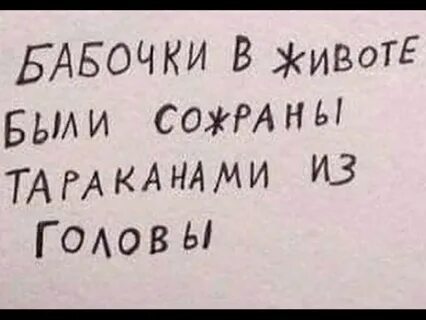 БАБОЧКИ В ЖИВОТЕ
БЫЛИ СОЖРАНЫ
ТАРАКАНАМИ ИЗ
ГОЛОВЫ